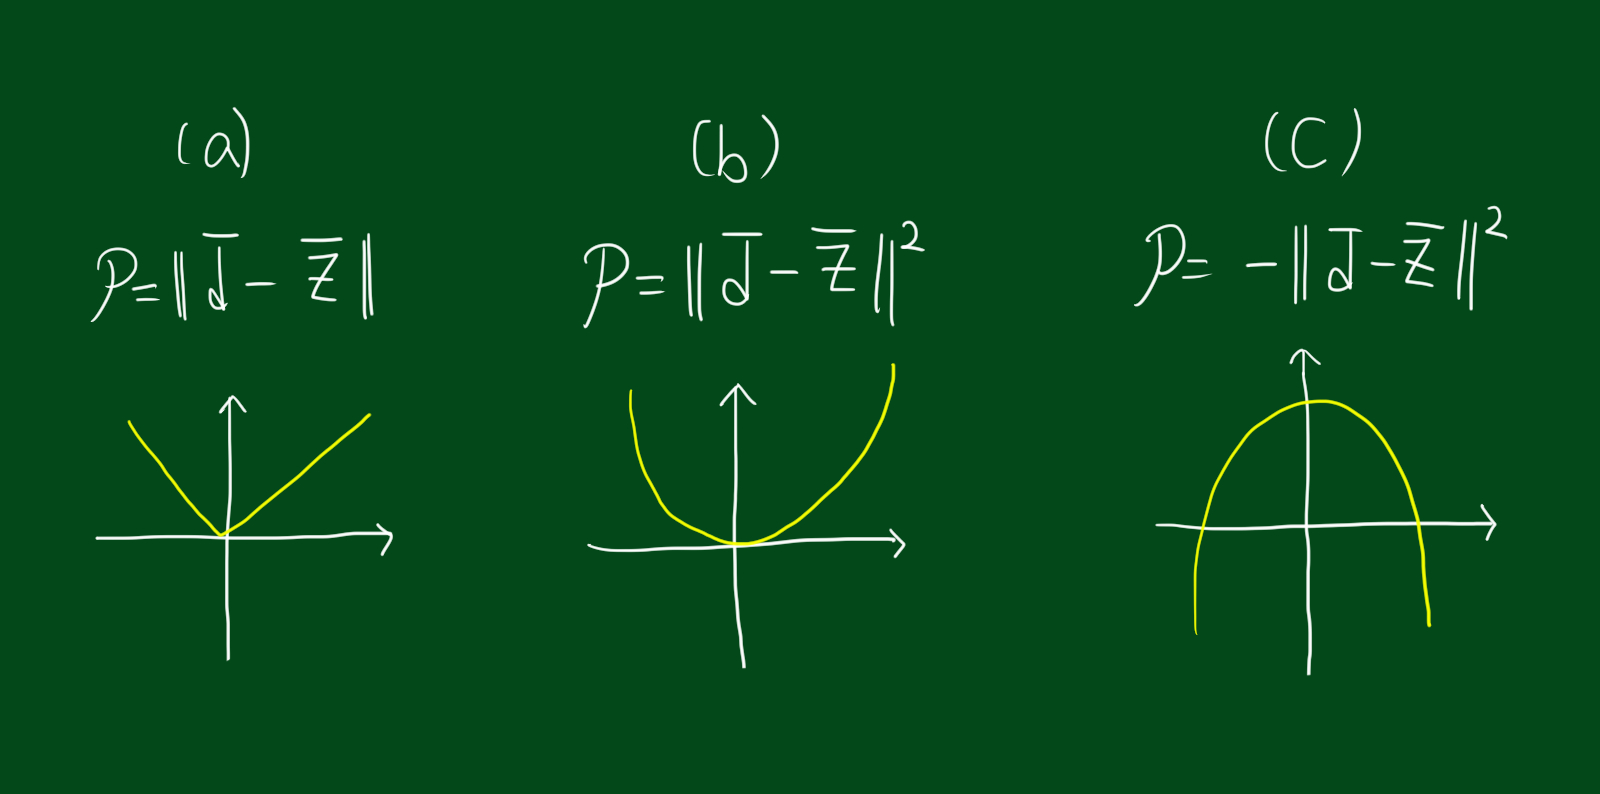 (a)
P=‖d̅ - z̅‖
(b)
P=‖d̅ - z̅‖²
(C)
P= -‖d̅ - z̅‖²